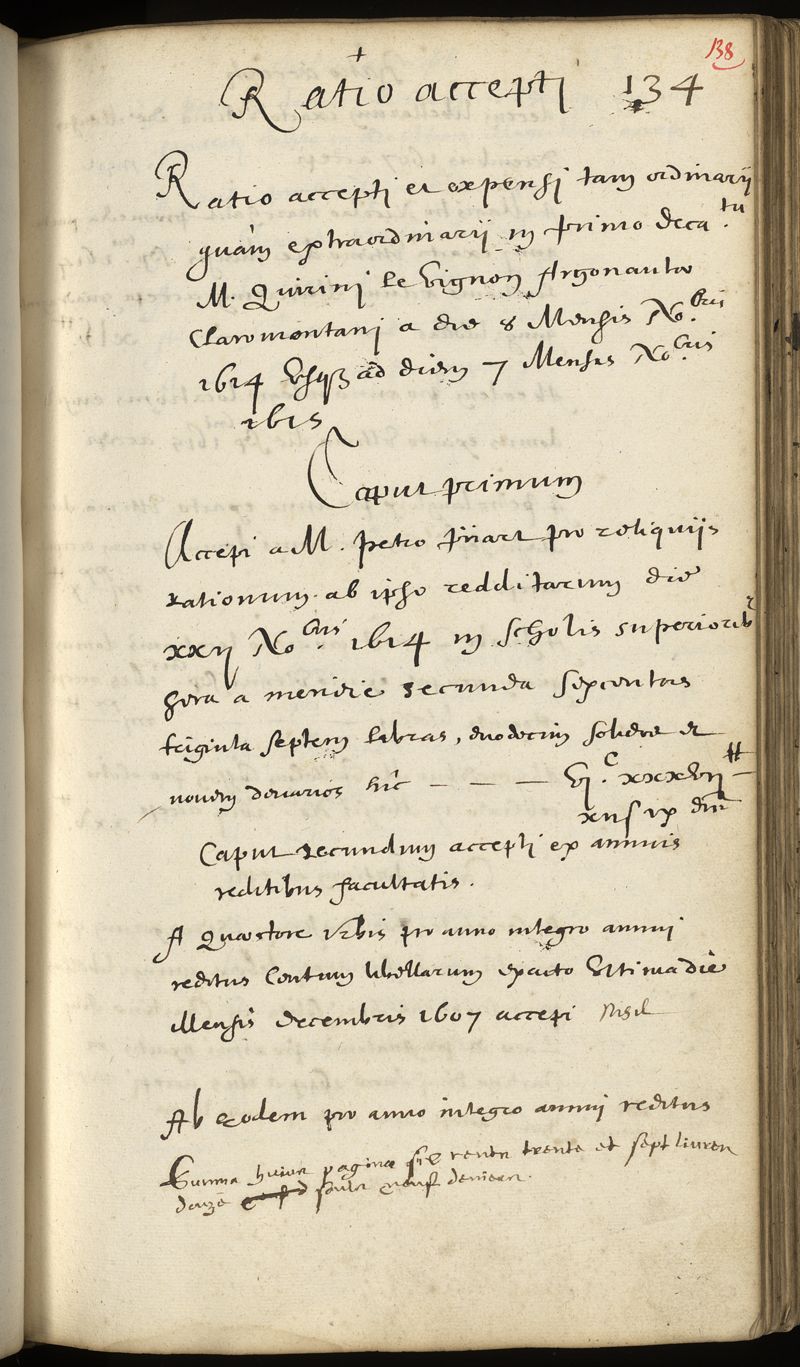 138
+
Ratio accepti 134
Ratio accepti et expensi tam ordinarij
quàm extraordinarij in primo decatu
M. Quirini le Vignon Argonautae
Claromontani a die 8 Mensis No.bris
1614 Vsq3 ad diem 7 Mensis No.bris
1615
Caput primum
Accepi a M. petro pijart pro reliquijs
rationum ab ipso redditarum die
xxij No.bris 1614 in scholis superiorib
hora a meridie secunda sexcentas
triginta septem libras, duodecim solidos et
novem denarios hîc — — — vj.C xxxvij ₶ —
xijs ix den
Caput secundum accepti ex annuis
reditibus facultatis.
A Quaestore Vrbis pro anno integro annui
reditus Centum libellarum exacto Vltima die
Mensis decembris 1607 accepi Nihil
Ab eodem pro anno integro annui reditus
Summa huius paginae six cents trente et sept livres
douze solz neuf deniers.